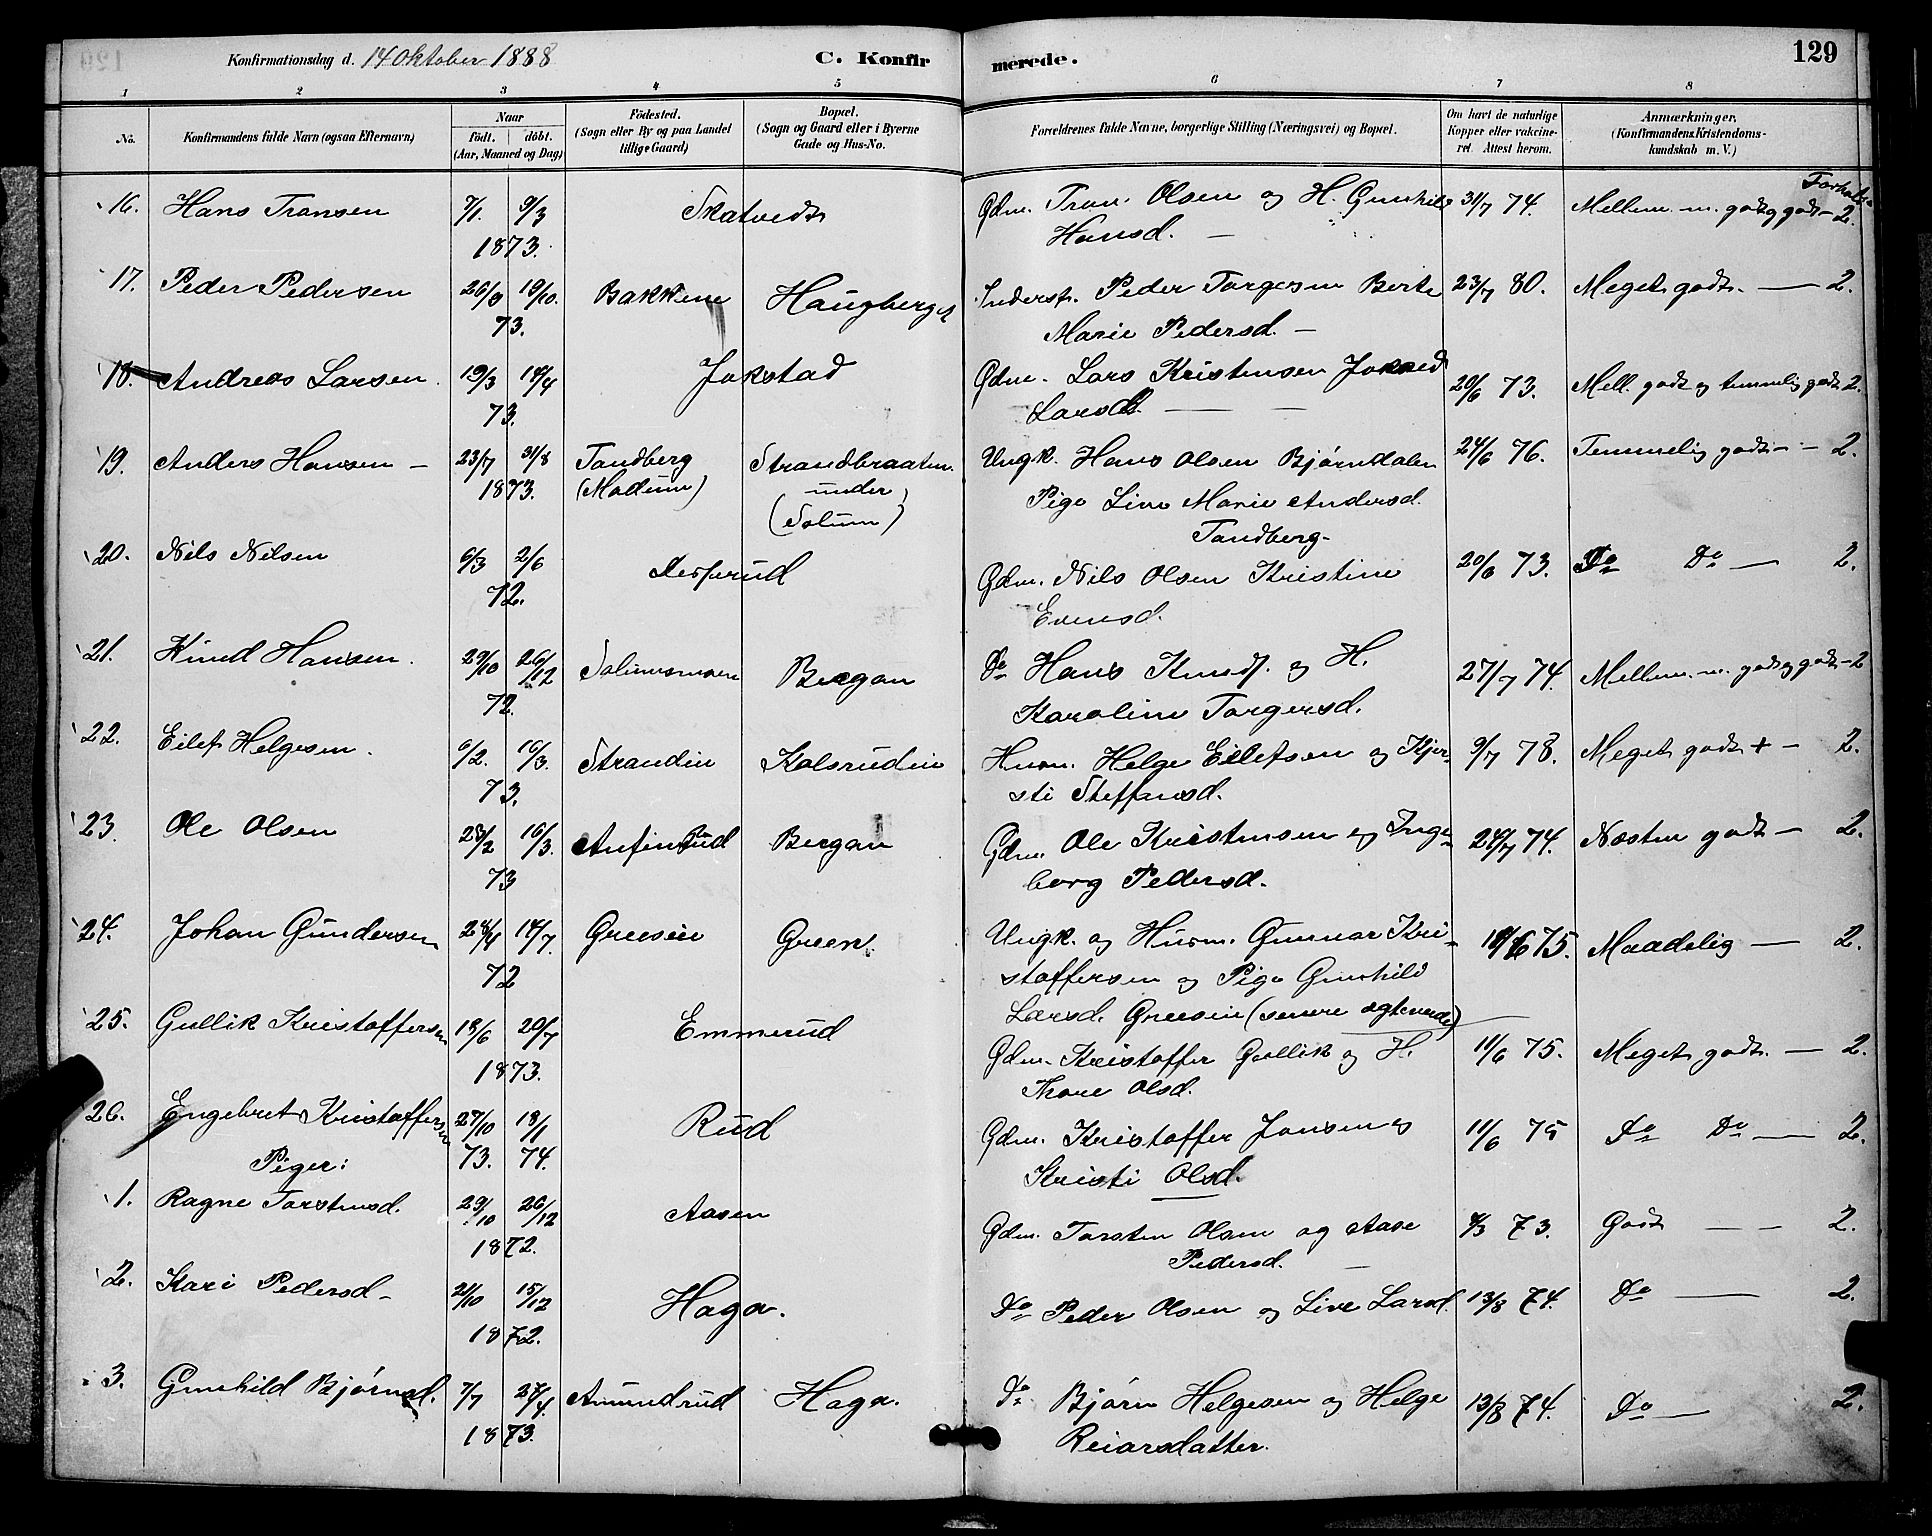 Konfirmationsdag d. 14 Oktober 1888 C. Konfirmerede. 129
1 2 3 4 5 6 7 8
No. Konfirmandens fulde Navn (ogsaa Efternavn) Naar födt. döbt. (Aar, Maaned og Dag) Födested. (Sogn eller By og paa Landet tillige Gaard) Bopæl. (Sogn og Gaard eller i Byerne Gade og Hus-No. Forældrenes fulde Navne, borgerlige Stilling (Næringsvei) og Bopæl. Om havt de naturlige Kopper eller vakcineret. Attest herom. Anmærkninger. (Konfirmandens Kristendomskundskab m. V.)
16. Hans Transen 7/1. 9/3 Skatvedt Gdm. Tran Olsen og H. Gunhild 31/7 74. Mellem. m. godt og godt - 2.
1873. Hansd. —
17. Peder Pedersen 26/9 19/10. Bakkene Haugberget Inderst. Peder Torgesen Berte 23/7 80. Meget godt. — 2.
73. Marie Pedersd. —
18. Andreas Larsen. 19/3 14/4 Jokstad Gdm. Lars Kristensen 20/6 73. Mell. godt og temmelig godt 2.
73. Larsd. —
19. Anders Hansen — 23/7 31/8 Tandberg Strandbraaten Ungk. Hans Olsen Bjørndalen 24/6 76. Temmelig godt - - 2.
1873. (Modum) under Pige Live Marie Andersd.
(Solum) Tandberg-
20. Nils Nilsen 6/3 2/6 Gdm. Nils Olsen Kristine 20/6 73. Do Do — 2.
72. Evensd.
21. Knud Hansen. 29/10 26/12 Solumsmoen Bergan Do Hans Knuds. og H. 27/7 74. Mellem. m. godt og godt - 2
72. Karoline Torgersd.
22. Eilef Helgesen. 6/2. 16/3. Strandin Kolsrudeie Husm. Helge Eilefsen og Kjer- 9/7 78. Meget godt + - 2.
73. sti Steffensd.
23. Ole Olsen 23/2 16/3. Anfinrud Bergan Gdm. Ole Kristensen og Inge- 24/7 74. Næsten godt - 2.
73 borg Pedersd.
24. Johan Gundersen 28/4 14/7. Greeseie Green. Ungk. og Husm. Gunnar Kri- 75. Maadelig — 2.
72 stoffersen og Pige Gunhild
Larsd. Greeseie (senere ægteviede)
25. Gullik Kristoffersen 18/6 20/7 Emmerud Gdm. Kristoffer Gullik og H. 11/6 75. Meget godt. — 2.
1873. Thore Olsd.
26. Engebret Kristoffersen 27/10 18/1 Rud Gdm. Kristoffer Jonsen og 11/6 75 Do Do — 2.
73. 74. Kristi Olsd.
Piger:
1. Ragne Torstensd. 29/10 26/12 Aasen Gdm. Torsten Olsen og Aase 73. Godt — - 2.
1872. Pedersd. —
2. Kari Pedersd - 21/10 15/12 Haga. Do Peder Olsen og Live Larsd. 13/8 74. Do — 2.
1872.
3. Gunhild Bjørnsd. 7/7 27/4. Amundrud Haga. Do Bjørn Helgesen og Helge 13/8 74. Do — 2.
1873. Reiarsdatter.